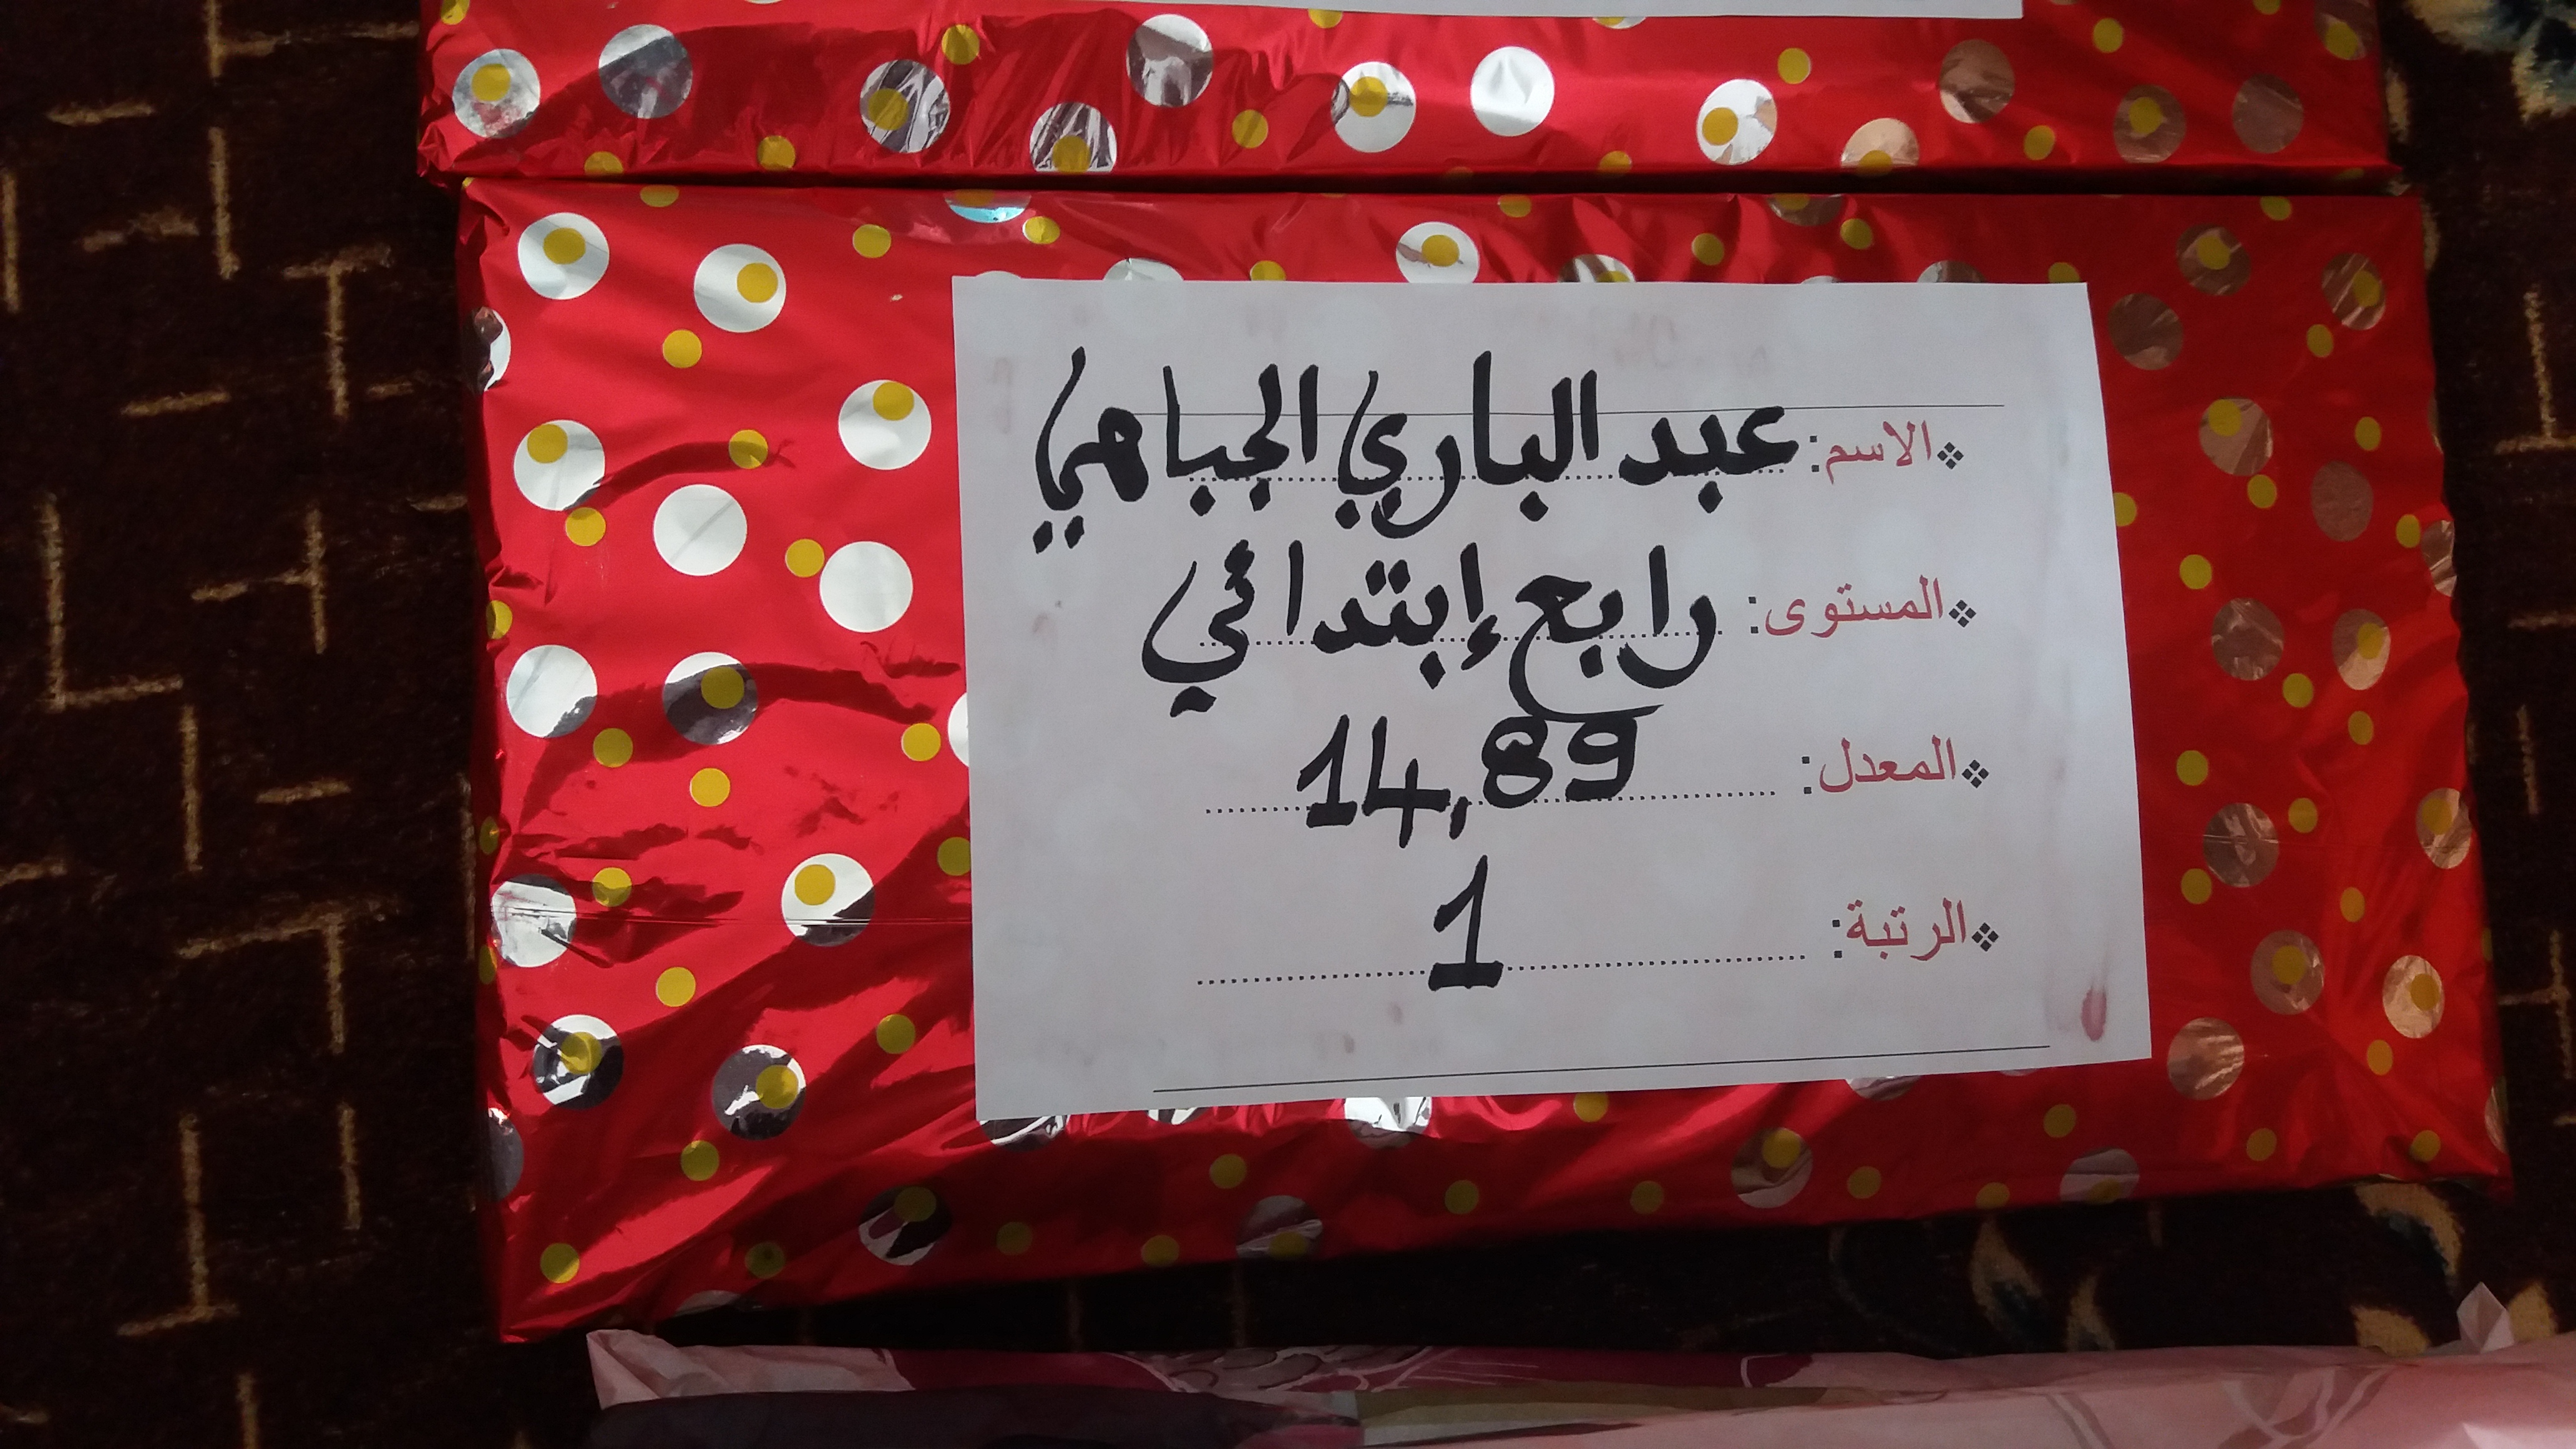 الاسم: عبد الباري الجباهي
المستوى: رابع إبتدائي
المعدل: 14,89
الرتبة: 1